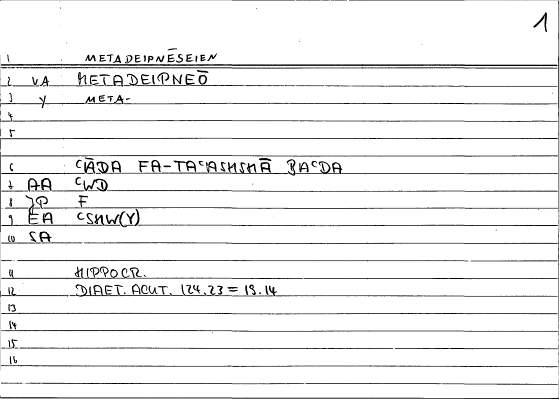 1
1 METADEIPNĒSEIEN
2 VA METADEIPNEŌ
3 Y META-
4
5
6 ᶜĀDA FA-TAᶜASHSHĀ BAᶜDA
7 AA ᶜWD
8 JP F
9 EA ᶜSHW(Y)
10 SA
11 HIPPOCR.
12 DIAET. ACUT. 124.23 = 19.14
13
14
15
16